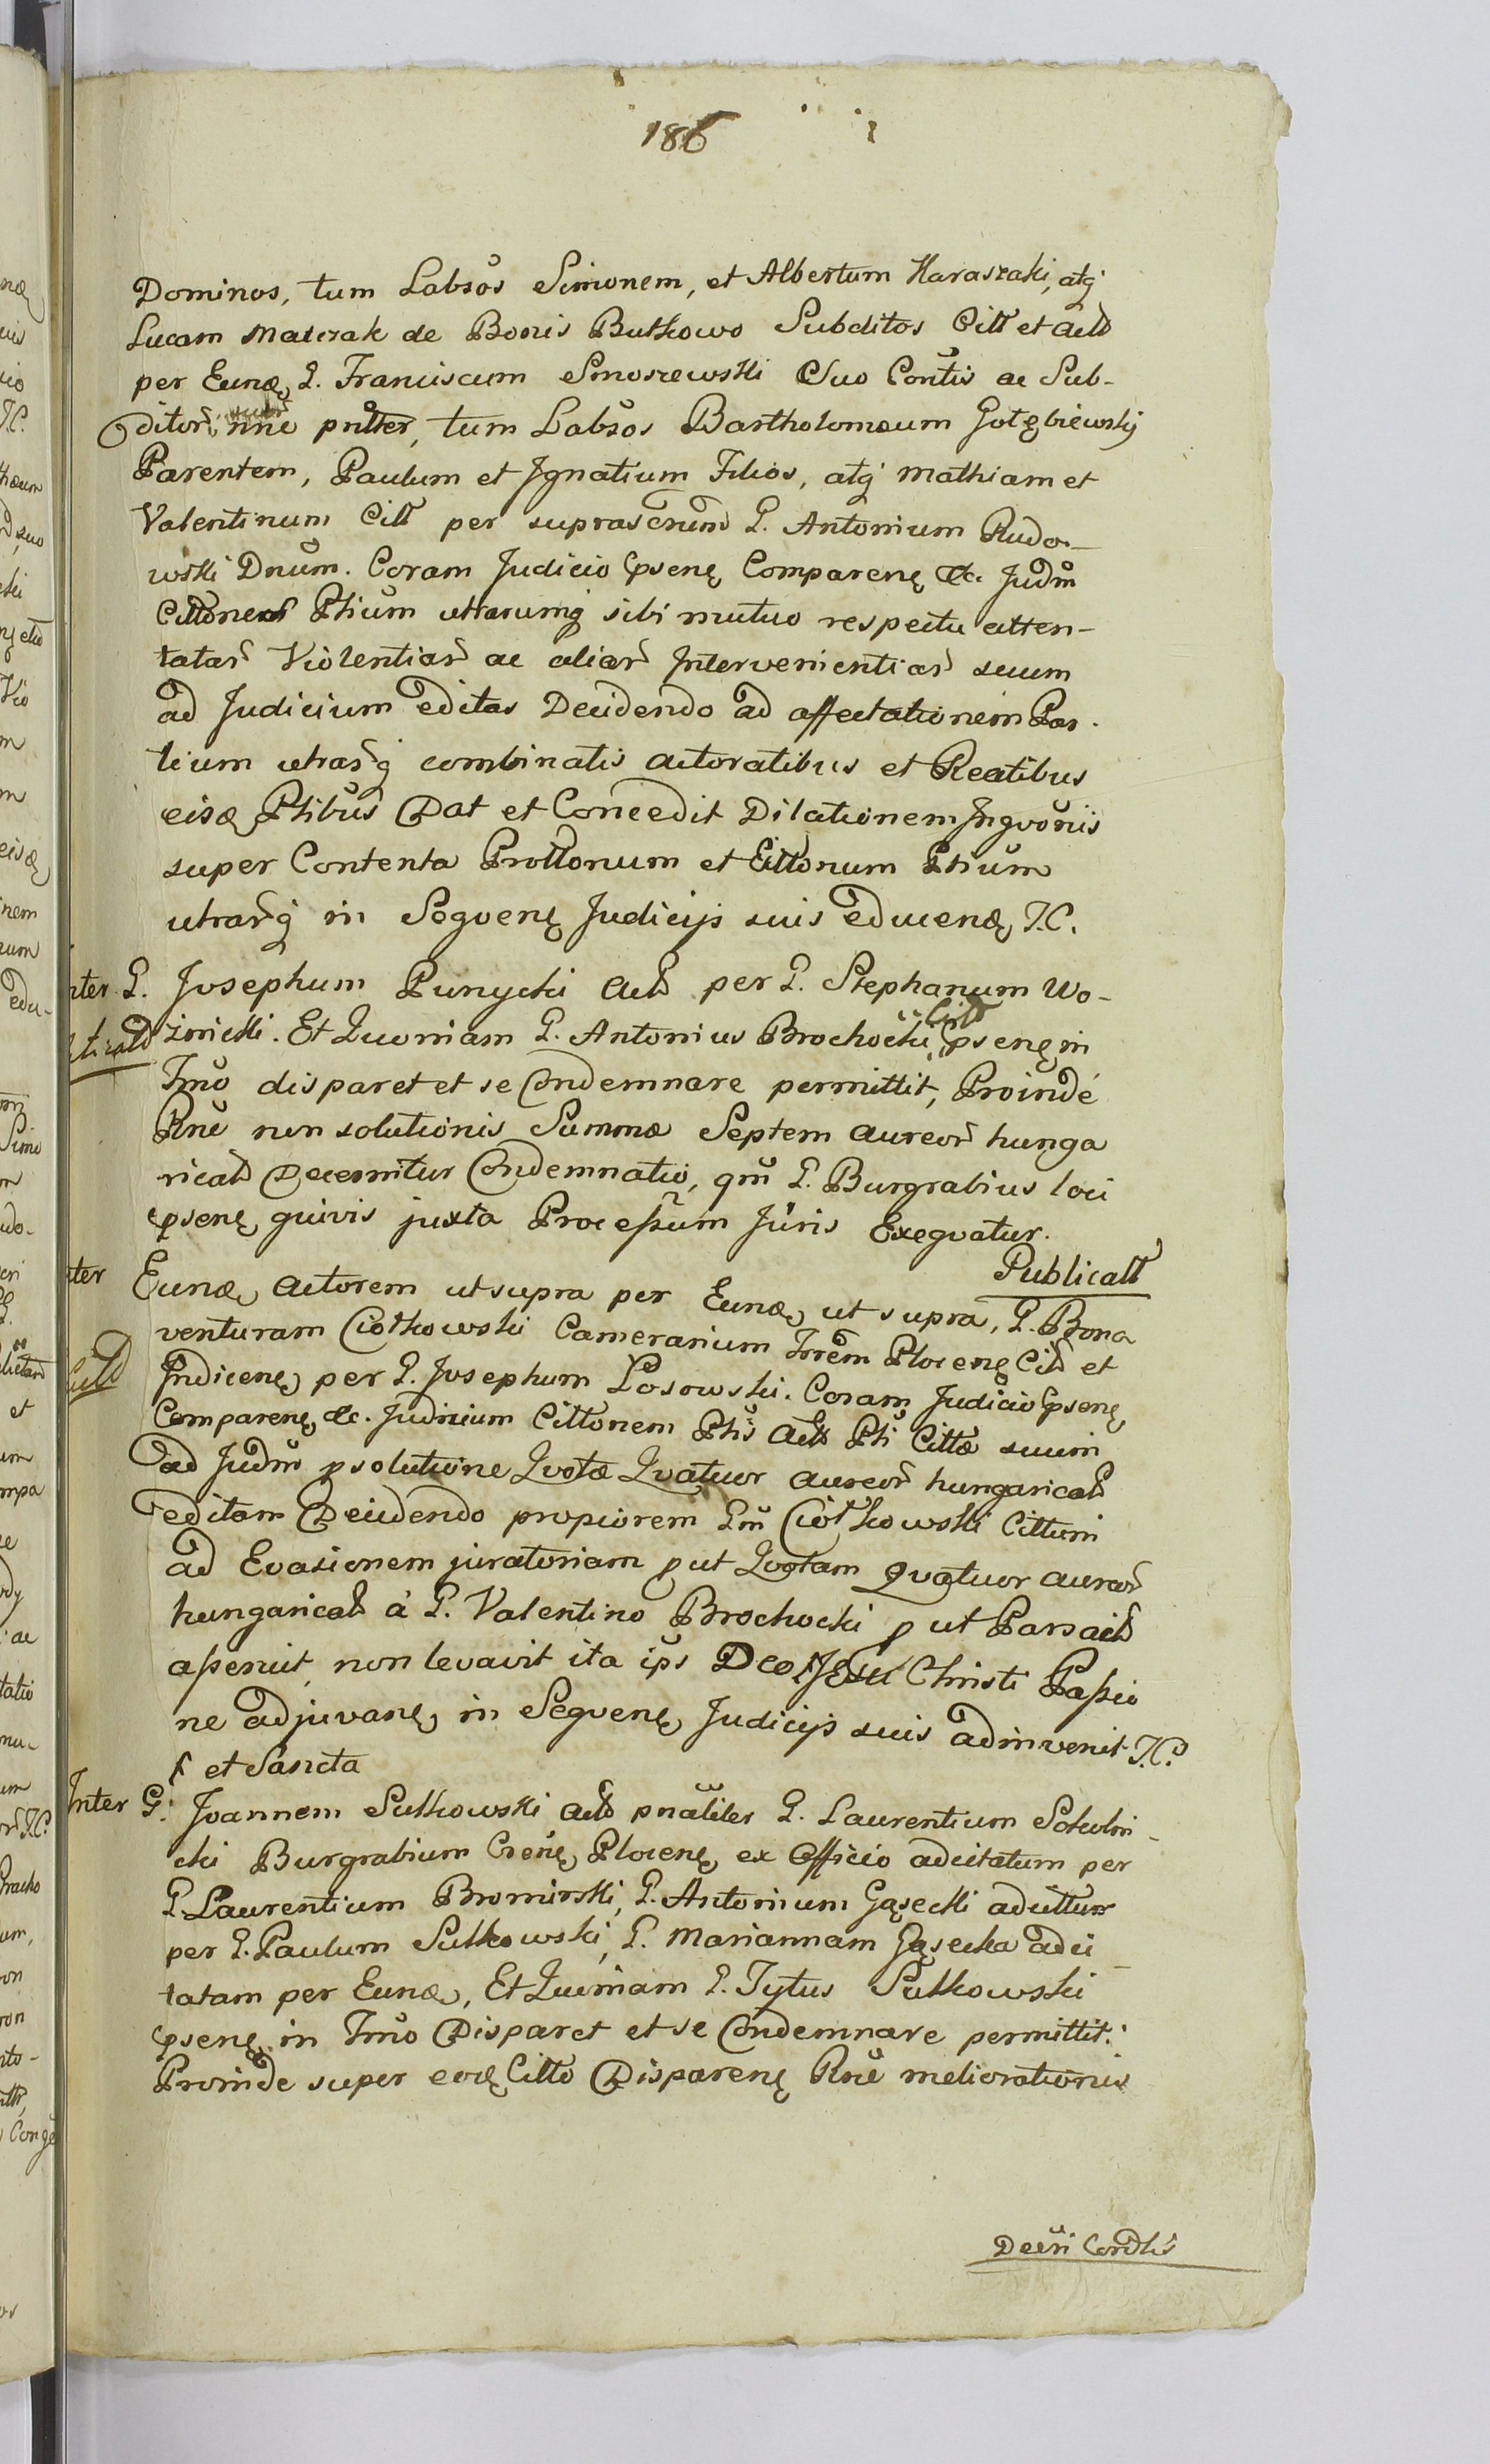 186
Dominos, tum Labsos Simonem, et Albertum Haraszki, atq
Lucam Maierak de Bonis Butkowo Subditos Citt et Actt
per Eund, G. Franciscum Smoszewski Suo Contis ac Sub-
ditor suor nne pntter, tum Labsos Bartholomæum Gołębiewskj
Parentem, Paulum et Ignatium Filios, atq Mathiam et
Valentinum Citt per suprascrum G. Antonium Rudo-
wski Dnum. Coram Judicio psenę Comparenę &c. Judm
Cittonem Ptium utrarumq sibi mutuo respectu atten-
tatar Violentiar ac aliar Intervenientiar suum
ad Judicium editas Decidendo ad affectationem Par-
tium utrarq combinatis Actoratibus et Reatibus
eisd Ptibus Dat et Concedit Dilationem Inqvonis
super Contenta Prottonum et Cittonum Ptium
utrarq in Seqvenę Judicijs suis educend, T.C.
Inter G. Josephum Punycki Actt per G. Stephanum Wo-
źnicki. Et Quoniam G. Antonius Brochocki Citt psenę in
Tmo disparet et se Condemnare permittit, Proindé
Rne non solutionis Summæ Septem Aureor hunga
rical Decernitur Condemnatio, qm G. Burgrabius loci
psenę quivis juxta Processum Juris Exeqvatur.
Publicatt
Inter Eund, Actorem ut supra per Eund, ut supra, G. Bona
venturam Ciołkowski Camerarium Trrem Plocenę Citt et
Indicenę per G. Josephum Łosowski. Coram Judicio psenę
Comparenę &c. Judicium Cittonem Ptis Actt Pti Cittæ suum
ad Judm p solutione Qvotæ Qvatuor Aureor hungarical
editam Decidendo propiorem Gm Ciołkowski Cittum
ad Evasionem juratoriam put Qvotam Qvatuor aureor
hungarical à G. Valentino Brochocki put Pars actt
asseruit non levavit ita ips Deo Jesu Christi Passio
ne adjuvanę, in Seqvenę Judicijs suis adinvenit T.C.
et Sancta
Inter G. Joannem Sutkowski Actt pnaliter G. Laurentium Sokolni-
cki Burgrabium Crenę Plocenę ex Officio adcitatum per
G. Laurentium Bromirski, G. Antonium Gąsecki adcittum
per G. Paulum Sutkowski, G. Mariannam Gąsecka adci
tatam per Eund, Et Quoniam G. Tytus Sutkowski
psenę in Tmo Disparet et se Condemnare permittit.
Proinde super eod Citto Disparenę Rne meliorationis
Decri Condtis